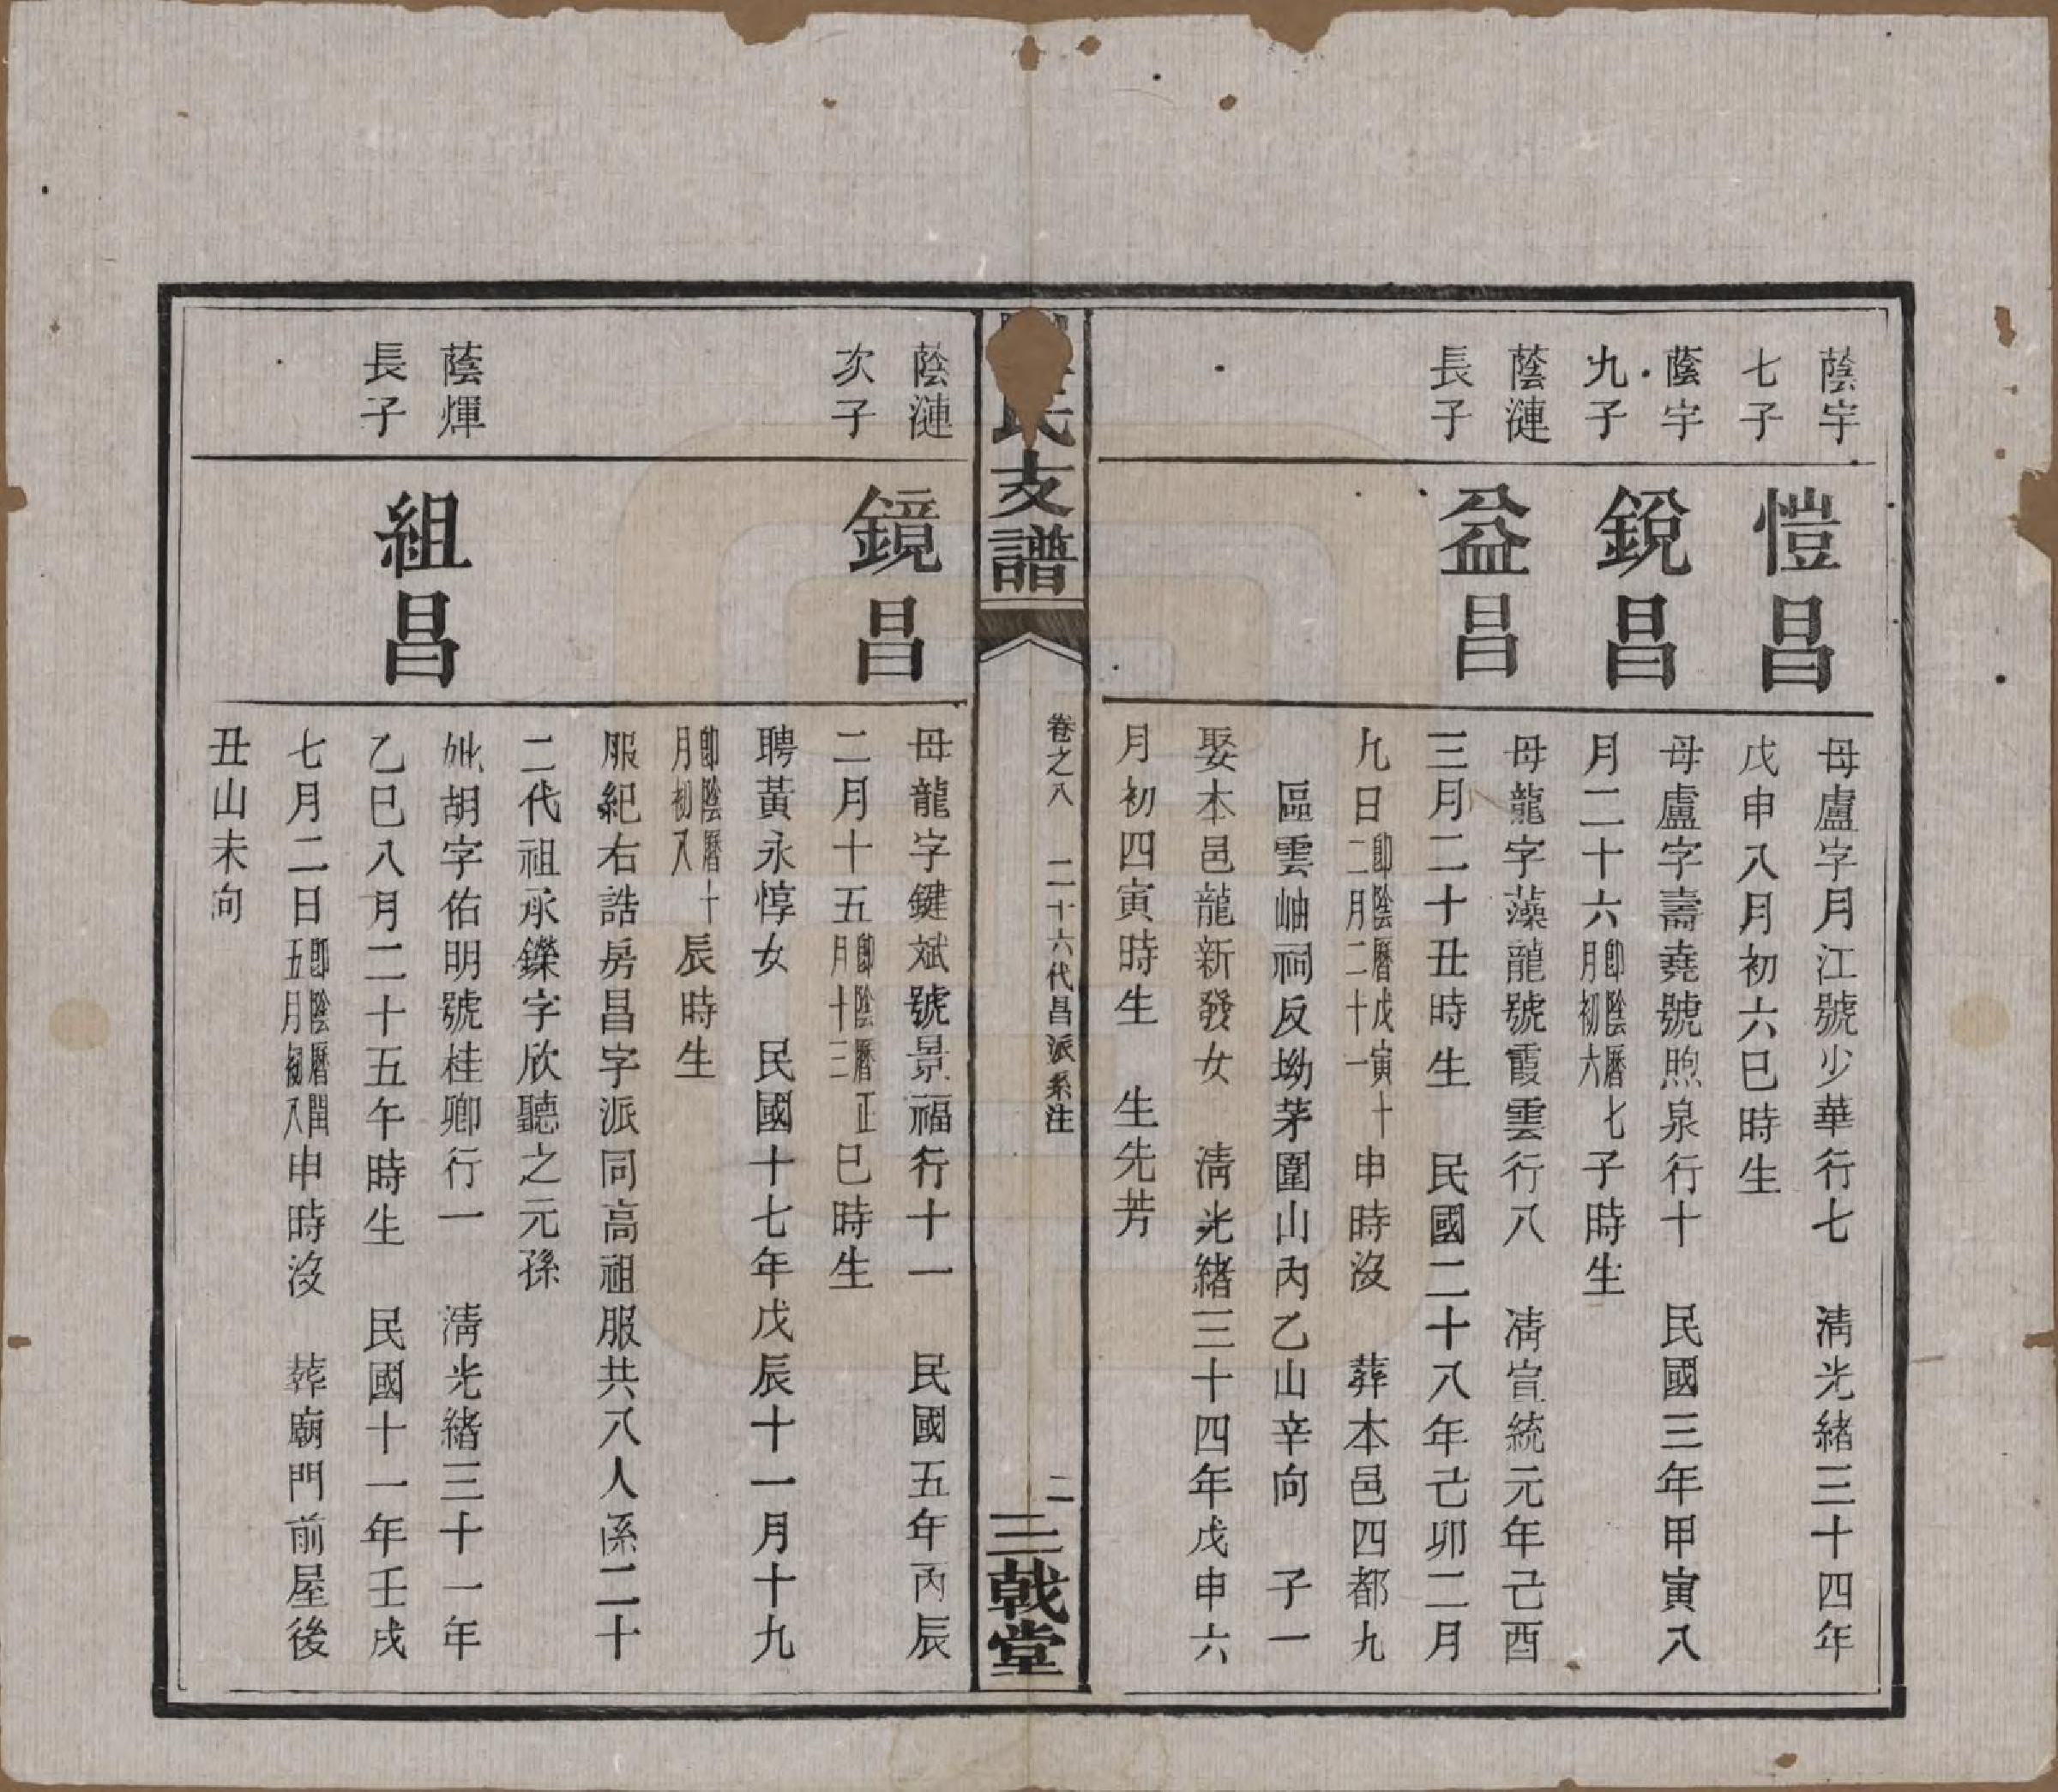 蔭宇
七子
愷昌
母盧字月江號少華行七　淸光緒三十四年
戊申八月初六巳時生
蔭宇
九子
銳昌
母盧字壽堯號煦泉行十　民國三年甲寅八
月二十六即陰曆七月初六子時生
蔭漣
長子
益昌
母龍字藻龍號霞雲行八　淸宣統元年己酉
三月二十丑時生　民國二十八年己卯二月
九日即陰曆戊寅十二月二十一申時沒　葬本邑四都九
區雲岫祠反坳茅圍山內乙山辛向　子一
娶本邑龍新發女　淸光緒三十四年戊申六
月初四寅時生　生先芳
氏支譜
卷之八　二十六代昌派系注
二
三戟堂
蔭漣
次子
鏡昌
母龍字鍵斌號景福行十一　民國五年丙辰
二月十五即陰曆正月十三巳時生
聘黃永惇女　民國十七年戊辰十一月十九
即陰曆十月初八辰時生
服紀右誥房昌字派同高祖服共八人係二十
二代祖承鑠字欣聽之元孫
蔭煇
長子
組昌
妣胡字佑明號桂卿行一　淸光緒三十一年
乙巳八月二十五午時生　民國十一年壬戌
七月二日即陰曆閏五月初八申時沒　葬廟門前屋後
丑山未向